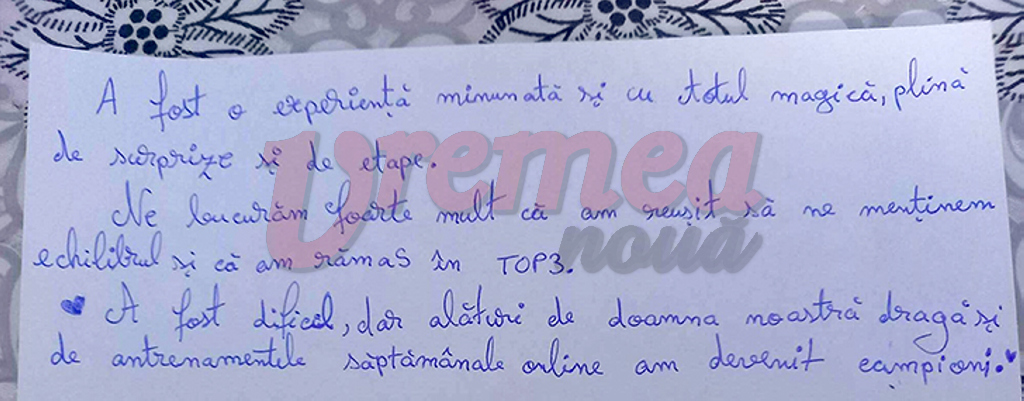 A fost o experiență minunată și cu totul magică, plină
de surprize și de etape.
Ne bucurăm foarte mult că am reușit să ne menținem
echilibrul și că am rămas în TOP3.
A fost dificil, dar alături de doamna noastră dragă și
de antrenamentele săptămânale online am devenit campioni.
Vremea
nouă